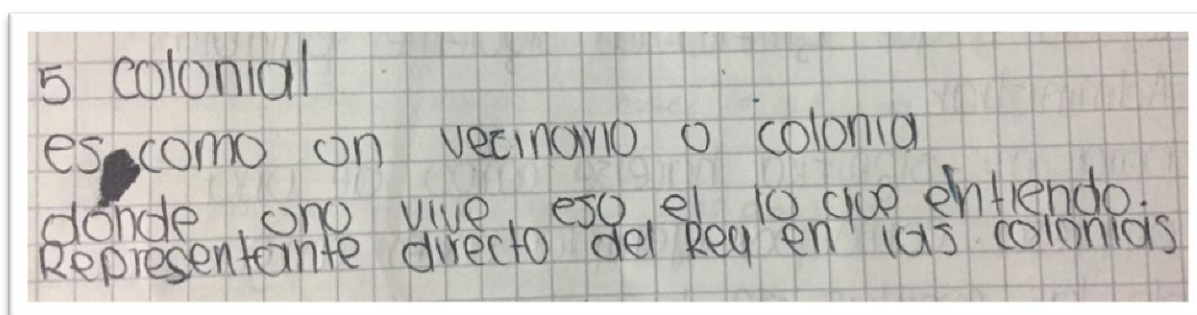 5 colonial
es como on vecinario o colonia
dónde ono vive, eso el lo que entiendo.
Representante directo del Rey en las colonias